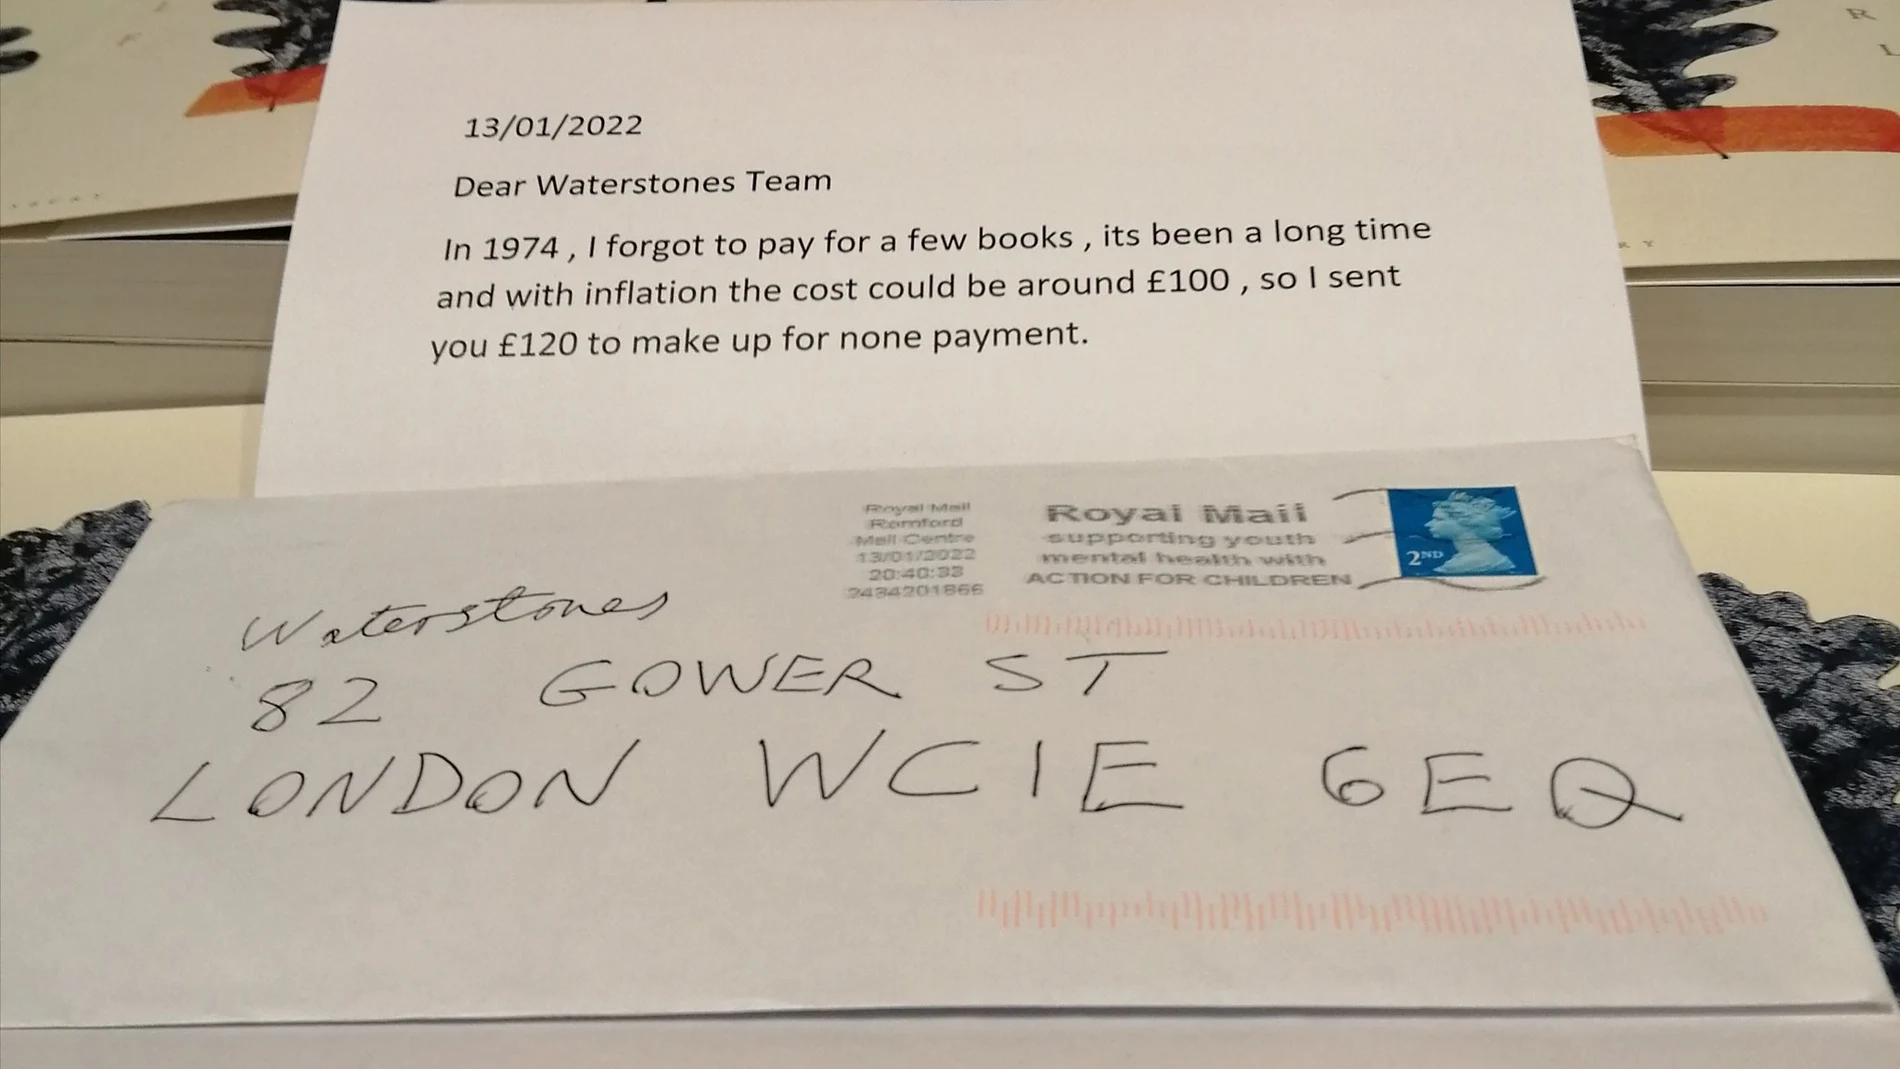 13/01/2022
Dear Waterstones Team
In 1974 , I forgot to pay for a few books , its been a long time
and with inflation the cost could be around £100 , so I sent
you £120 to make up for none payment.
Royal Mail
Romford
Mail Centre
13/01/2022
20:40:33
2434201866
Royal Mail
supporting youth
mental health with
ACTION FOR CHILDREN
2ND
Waterstones
82 GOWER ST
LONDON WC1E 6EQ